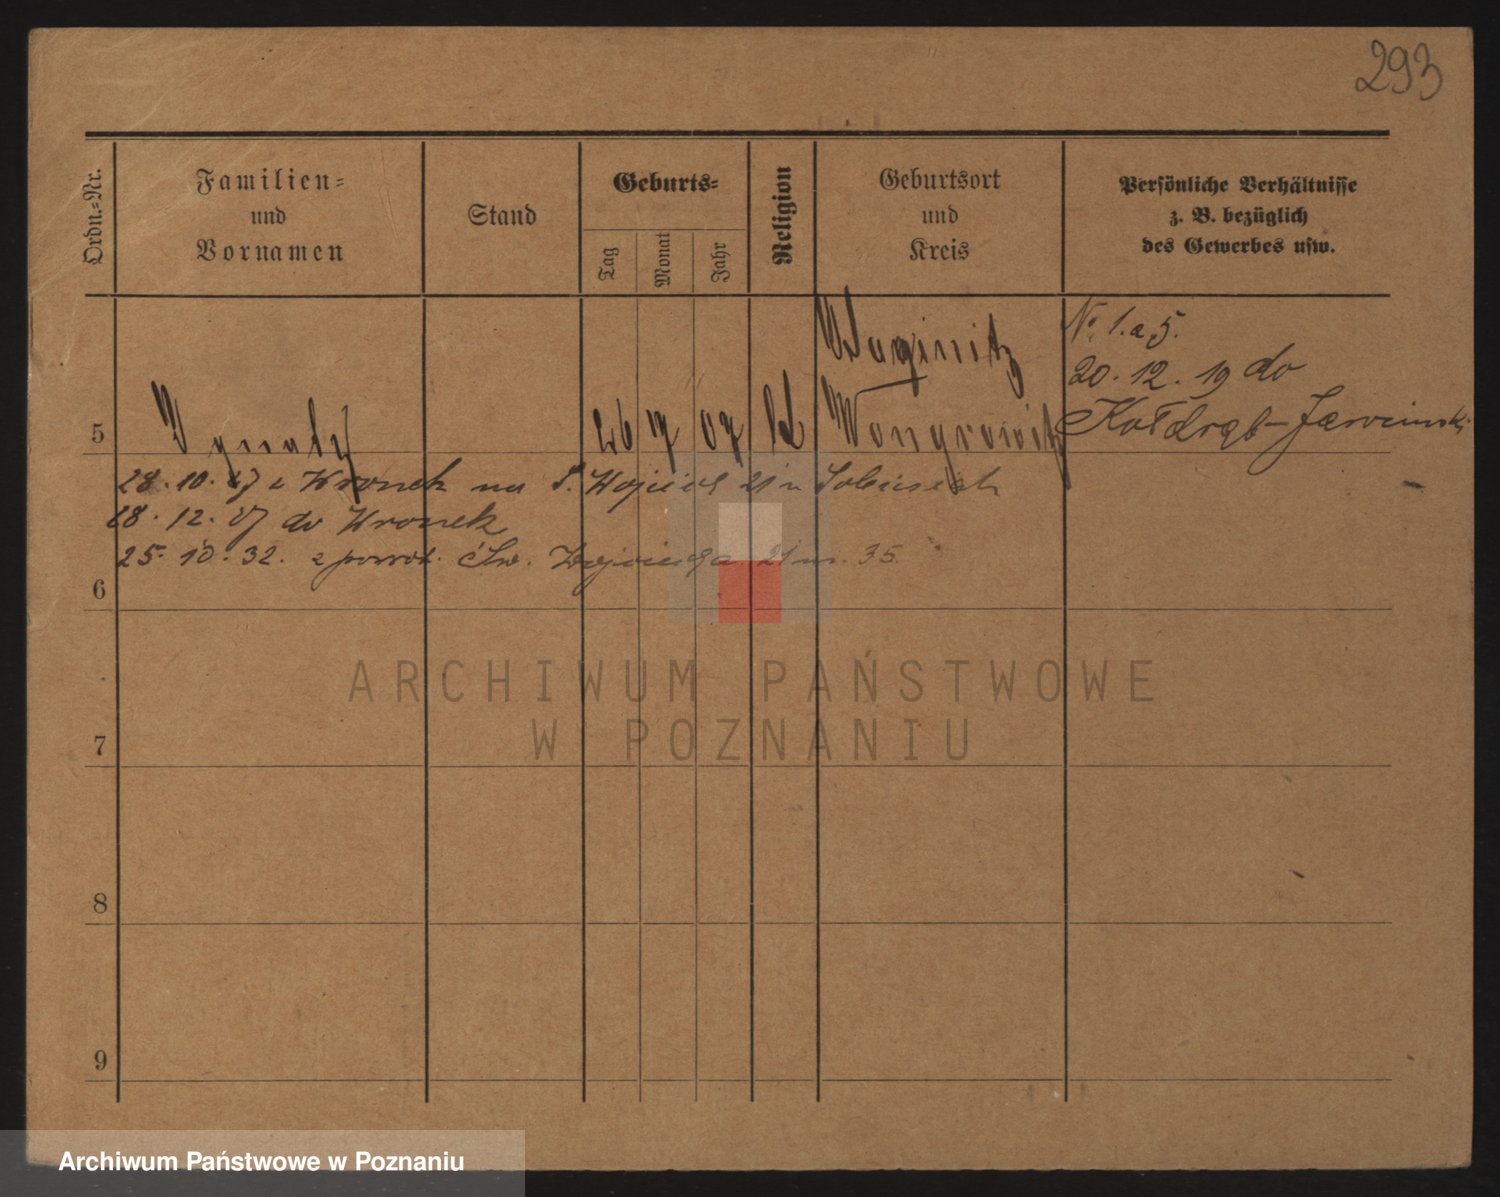 293
Ordn.-Nr.
Familien-
und
Vornamen
Stand
Geburts-
Tag
Monat
Jahr
Religion
Geburtsort
und
Kreis
Persönliche Verhältnisse
z. B. bezüglich
des Gewerbes usw.
5
Ignatz
26 7 07
Wongrowitz
No. 1. a 5.
20. 12. 19 do
Kołdrąb -
28. 10. 27 z Wronek na
18. 12. 27 do Wronek
25. 10. 32. z powrot. Św. Wojciecha 21 m. 35
6
7
8
9
ARCHIWUM PAŃSTWOWE
W POZNANIU
Archiwum Państwowe w Poznaniu